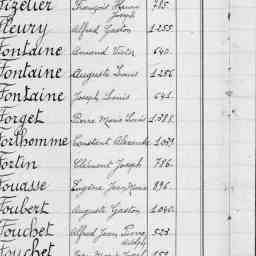 Fizelier François Pierre 785.
Joseph
Fleury Alfred Gaston 1255.
Fontaine Armand Victor 640.
Fontaine Auguste Louis 1256
Fontaine Joseph Louis 641.
Forget Pierre Marie Louis 1038.
Forthomme Constant Alexandre 1039.
Fortin Clément Joseph 786.
Fouasse Eugène Jean Marie 896.
Foubert Auguste Gaston 1040.
Fouchet Alfred Jean Pierre 523.
Adolphe
Fouchet